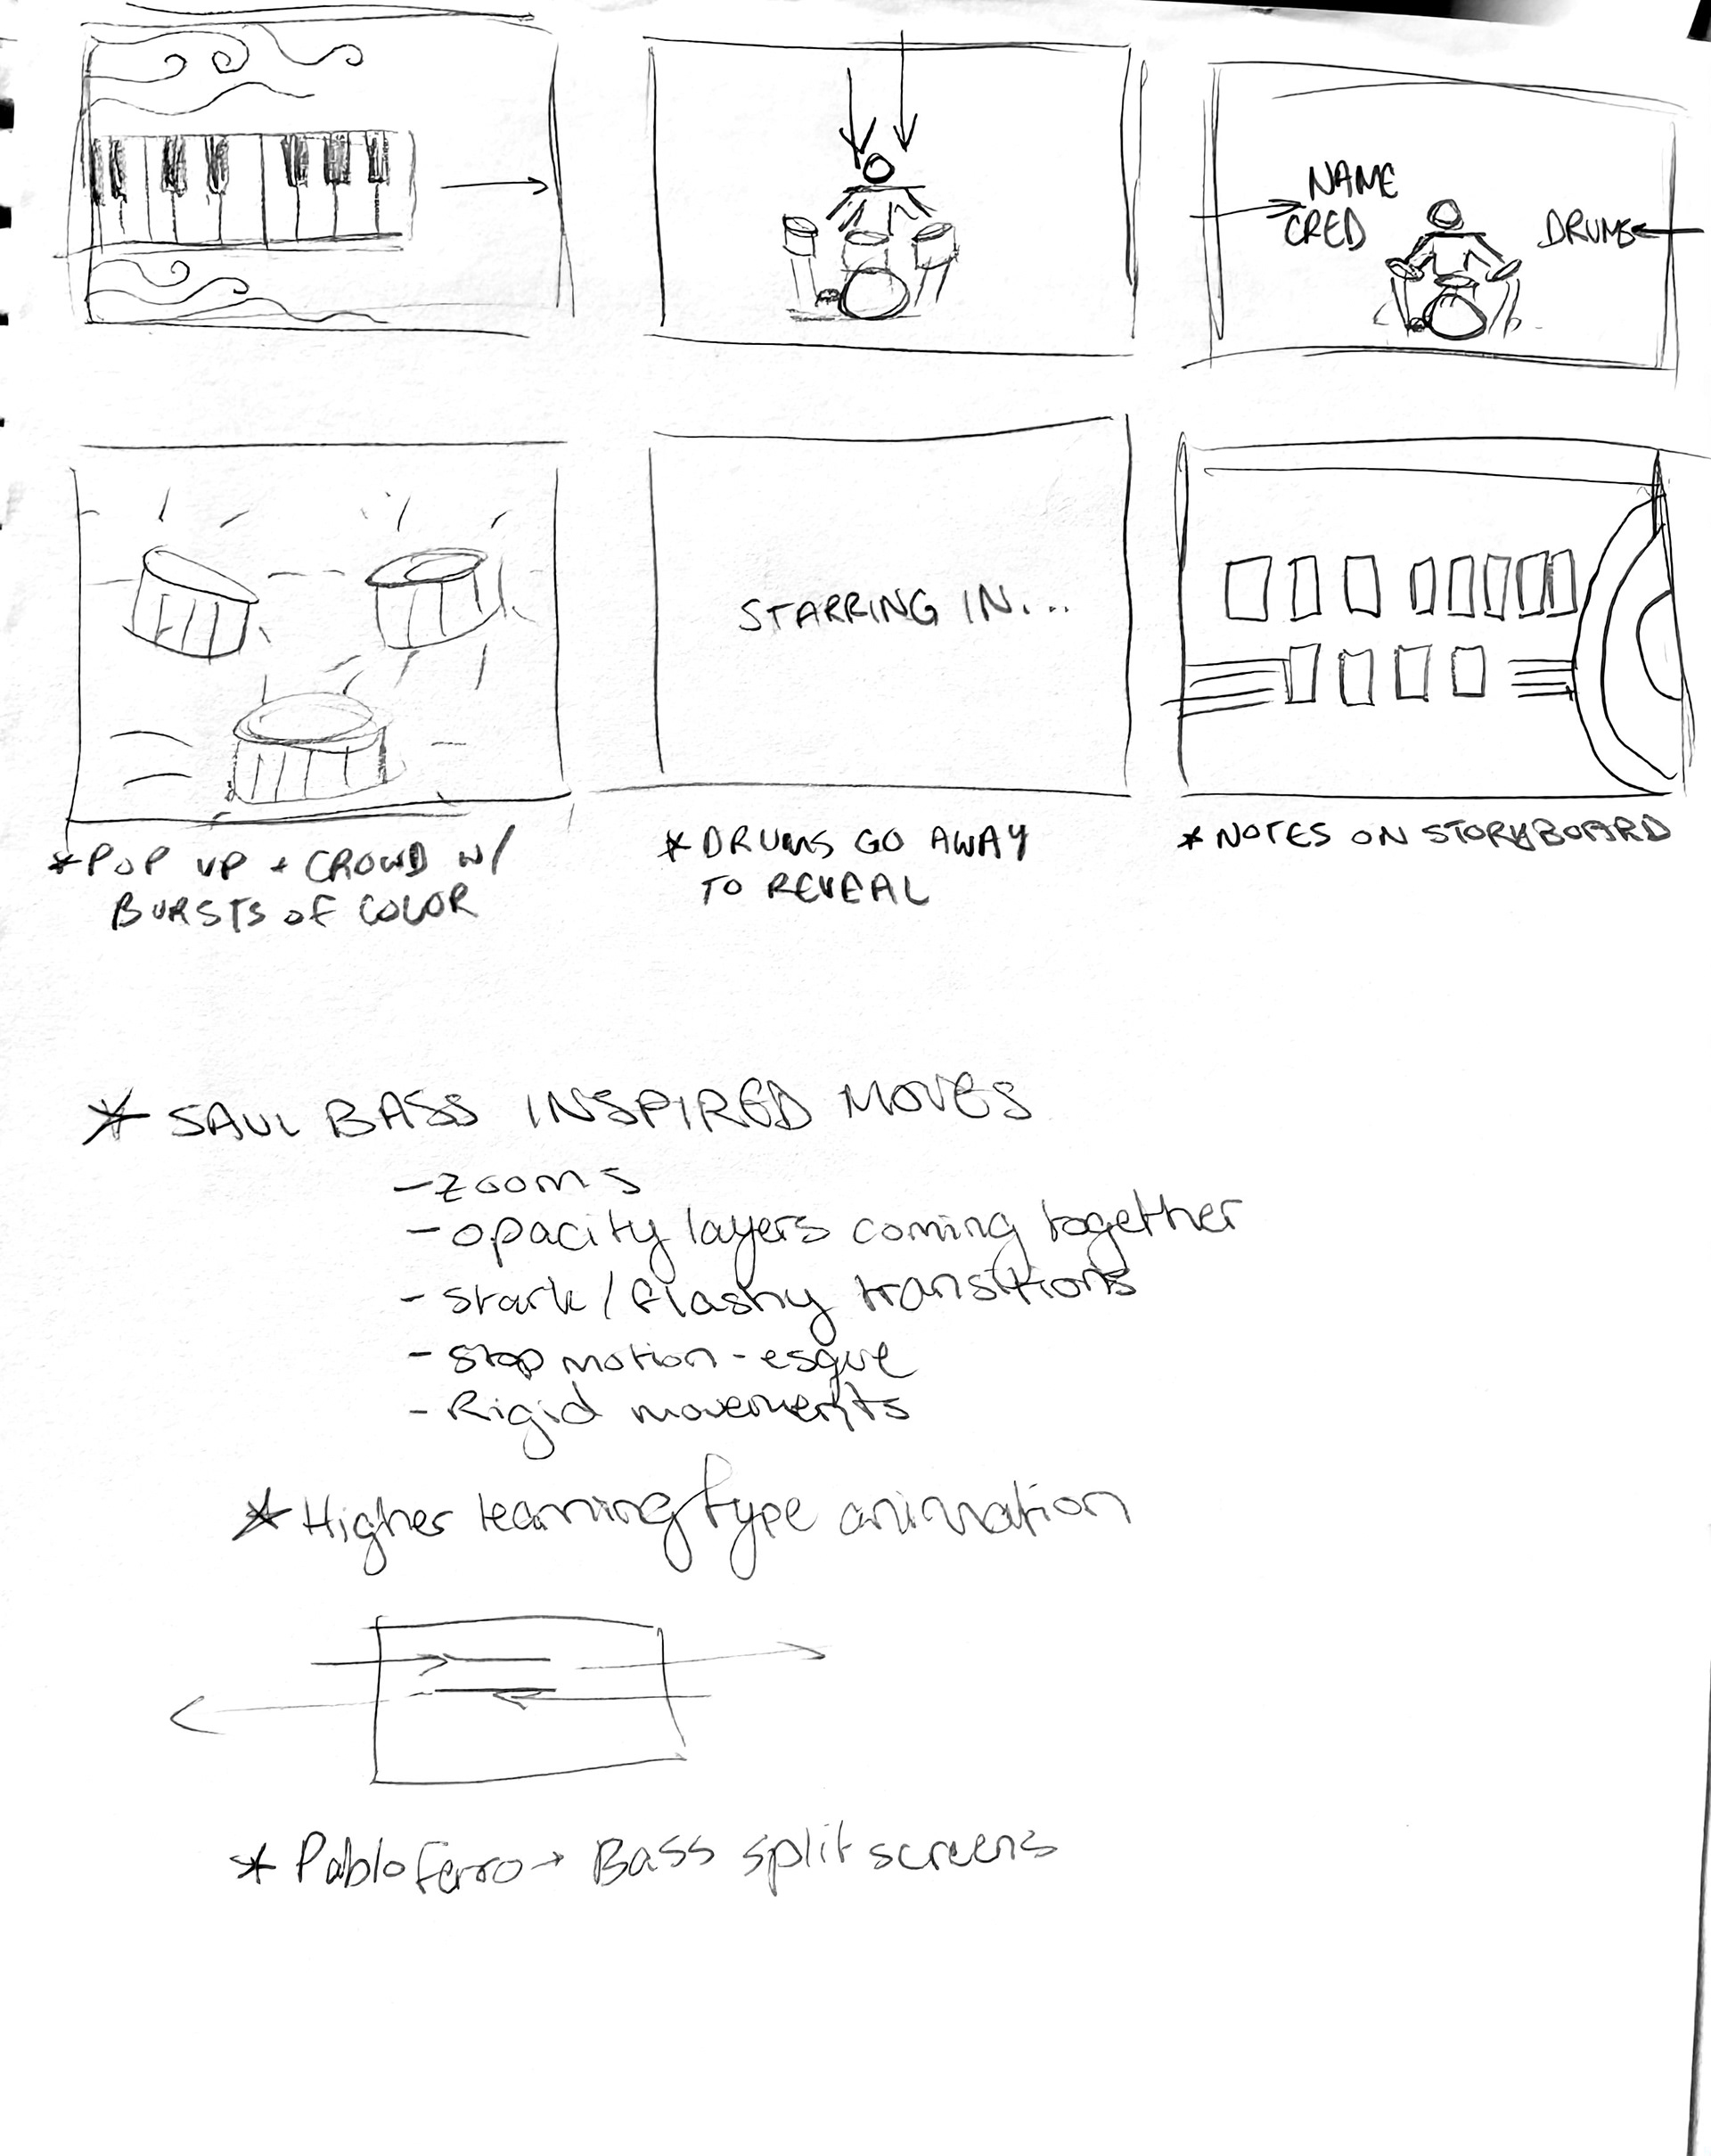 NAME
CRED
DRUMS
STARRING IN...
*POP UP + CROWD W/
BURSTS OF COLOR
*DRUMS GO AWAY
TO REVEAL
*NOTES ON STORYBOARD
* SAUL BASS INSPIRED MOVES
- zooms
- opacity layers coming together
- stark / flashy transitions
- stop motion-esque
- Rigid movements
* Higher learning type animation
* Pablo Ferro → Bass split screens